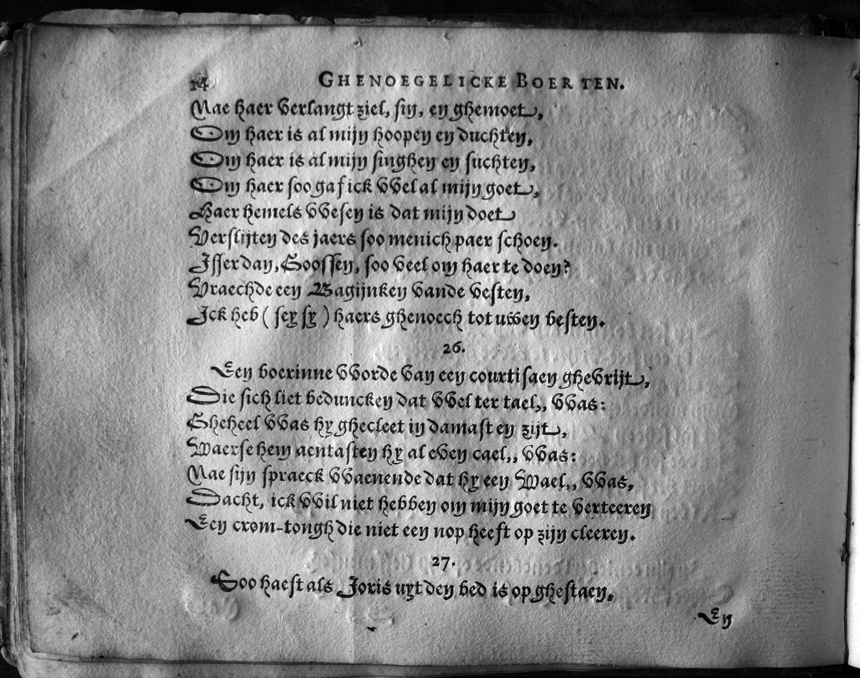 14 GHENOEGELICKE BOERTEN.
Nae haer verlangt ziel, sin, en ghemoet,
Om haer is al mijn hoopen en duchten,
Om haer is al mijn singhen en suchten,
Om haer soo gaf ick vvel al mijn goet,
Haer hemels vvesen is dat mijn doet
Verslijten des jaers soo menich paer schoen.
Isser dan, Goossen, soo veel om haer te doen?
Vraechde een Bagijnken vande vesten,
Ick heb (sey sy) haers ghenoech tot uwen besten.
26.
Een boerinne vvorde van een courtisaen ghevrijt,
Die sich liet beduncken dat vvel ter tael,, vvas:
Gheheel vvas hy ghecleet in damast en zijt,
Waerse hem aentasten hy al even cael,, vvas:
Nae sijn spraeck vvaenende dat hy een Wael,, vvas,
Dacht, ick vvil niet hebben om mijn goet te verteeren
Een crom-tongh die niet een nop heeft op zijn cleeren.
27.
Soo haest als Joris uyt den bed is op ghestaen,
En